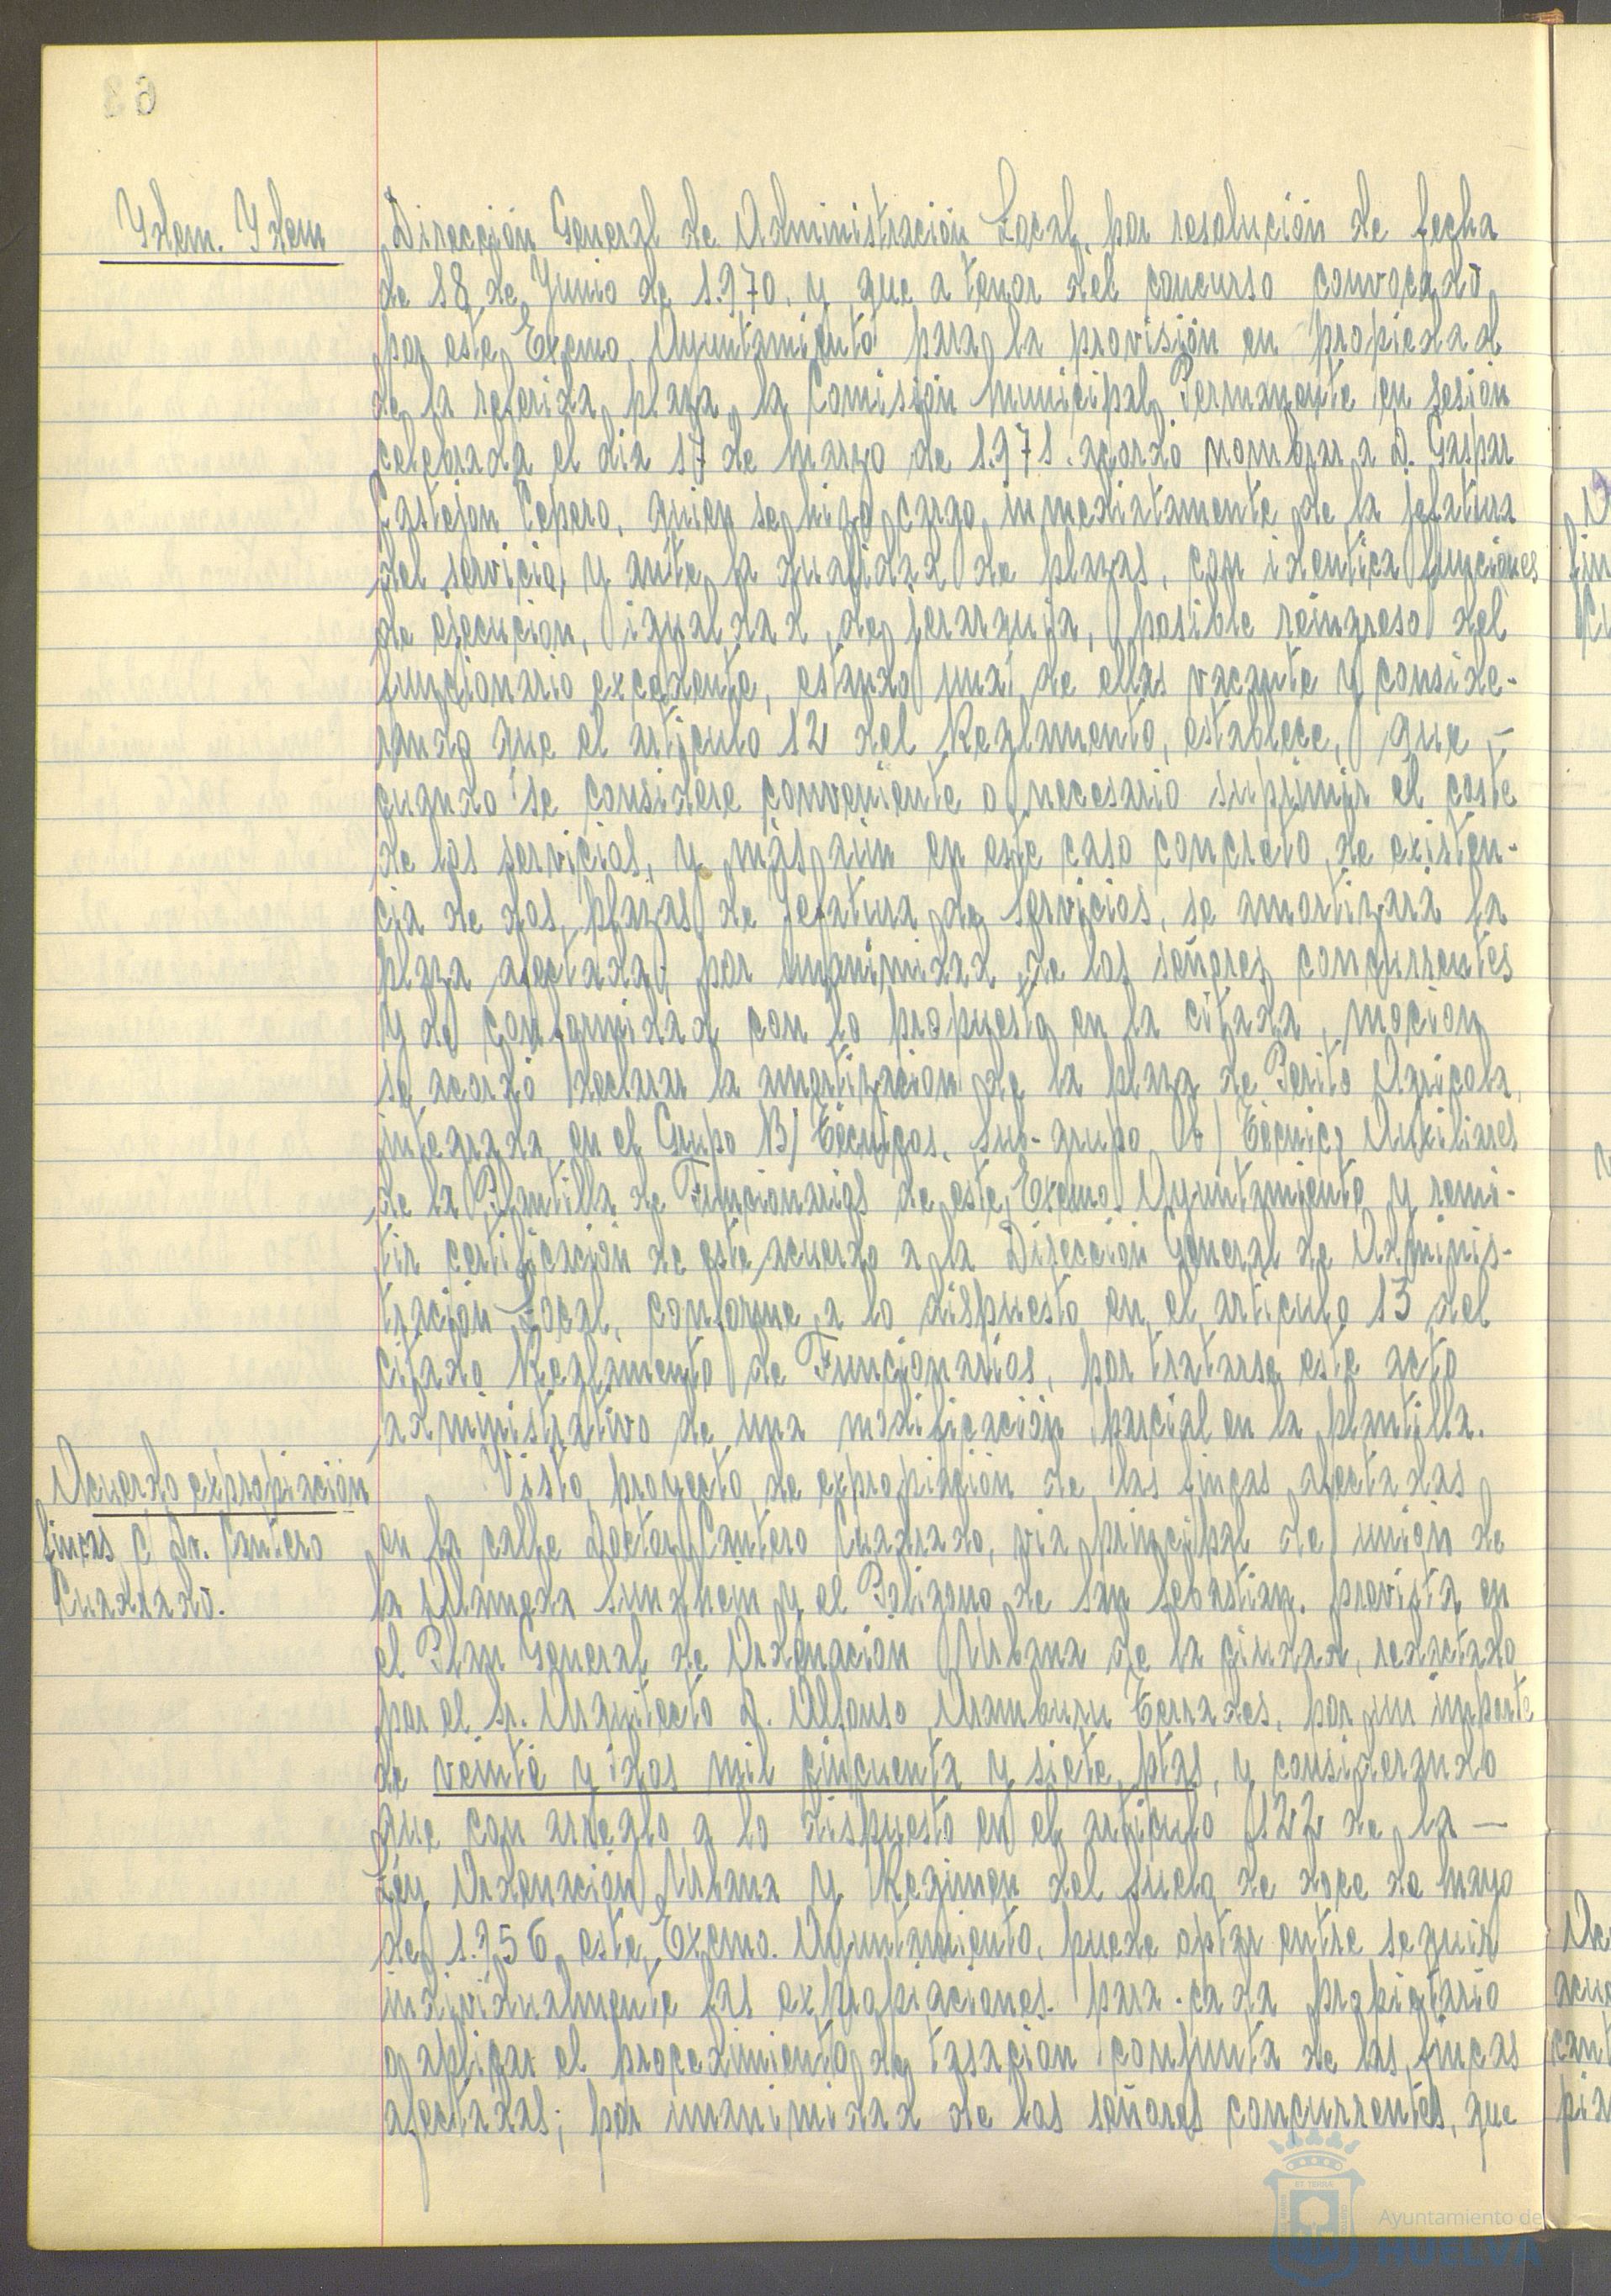 Ydem. Ydem
Dirección General de Administración Local, por resolución de fecha
de 18 de Junio de 1.970, y que a tenor del concurso convocado
por este Excmo. Ayuntamiento para la provisión en propiedad
de la referida plaza, la Comisión Municipal Permanente en sesión
celebrada el dia 17 de Marzo de 1.971. acordó nombrar a D. Gaspar
Castejon Cepero, quien se hizo cargo inmediatamente de la jefatura
del servicio, y ante la dualidad de plazas, con identica funciones
de ejecución, igualdad de jerarquia, posible reingreso del
funcionario excedente, estando una de ellas vacante y conside-
rando que el articulo 12 del Reglamento, establece, que -
cuando se considere conveniente o necesario suprimir el coste
de los servicios, y más aún en este caso concreto de existen-
cia de dos plazas de Jefatura de Servicios, se amortizará la
plaza afectada; por unanimidad de los señores concurrentes
y de conformidad con lo propuesto en la citada moción
se acordó declarar la amortización de la plaza de Perito Agricola,
integrada en el Grupo B) Técnicos, sub-grupo b) Técnico Auxiliares
de la Plantilla de Funcionarios de este Excmo. Ayuntamiento y remi-
tir certificación de este acuerdo a la Dirección General de Adminis-
tración Local, conforme a lo dispuesto en el articulo 13 del
citado Reglamento de Funcionarios, por tratarse este acto
administrativo de una modificación parcial en la plantilla.
Acuerdo expropiación
fincas c/ Dr. Cantero
Cuadrado.
Visto proyecto de expropiación de las fincas afectadas
en la calle Doctor Cantero Cuadrado, via principal de unión de
la Alameda Sundheim y el Poligono de San Sebastian. prevista en
el Plan General de Ordenación Urbana de la ciudad, redactado
por el Sr. Arquitecto D. Alfonso Aramburu Terrades, por un importe
de veinte y dos mil cincuenta y siete ptas, y considerando
que con arreglo a lo dispuesto en el articulo 122 de la —
Ley Ordenación Urbana y Regimen del Suelo de doce de Mayo
de 1.956, este Excmo. Ayuntamiento, puede optar entre seguir
individualmente las expropiaciones para cada propietario
o aplicar el procedimiento de tasación conjunta de las fincas
afectadas; por unanimidad de los señores concurrentes, que
Ayuntamiento de
HUELVA